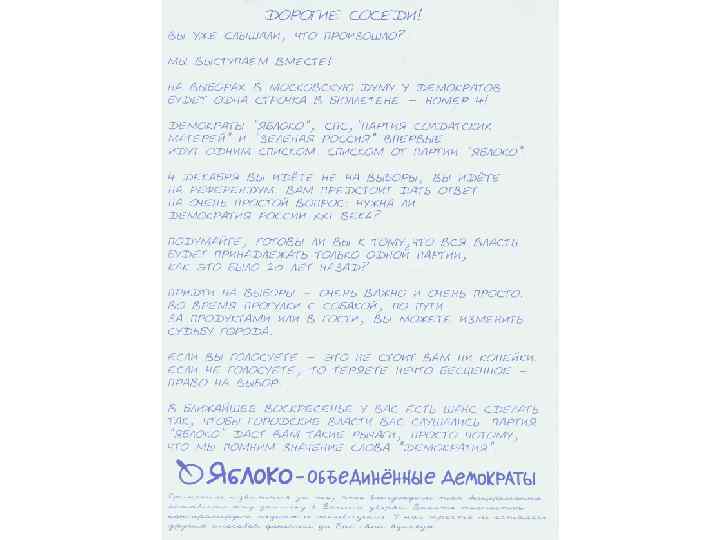 ДОРОГИЕ СОСЕДИ!
ВЫ УЖЕ СЛЫШАЛИ, ЧТО ПРОИЗОШЛО?
МЫ ВЫСТУПАЕМ ВМЕСТЕ!
НА ВЫБОРАХ В МОСКОВСКУЮ ДУМУ У ДЕМОКРАТОВ
БУДЕТ ОДНА СТРОЧКА В БЮЛЛЕТЕНЕ – НОМЕР 4!
ДЕМОКРАТЫ "ЯБЛОКО", СПС, "ПАРТИЯ СОЛДАТСКИХ
МАТЕРЕЙ" И "ЗЕЛЕНАЯ РОССИЯ" ВПЕРВЫЕ
ИДУТ ОДНИМ СПИСКОМ. СПИСКОМ ОТ ПАРТИИ "ЯБЛОКО"
4 ДЕКАБРЯ ВЫ ИДЁТЕ НЕ НА ВЫБОРЫ, ВЫ ИДЁТЕ
НА РЕФЕРЕНДУМ. ВАМ ПРЕДСТОИТ ДАТЬ ОТВЕТ
НА ОЧЕНЬ ПРОСТОЙ ВОПРОС: НУЖНА ЛИ
ДЕМОКРАТИЯ РОССИИ XXI ВЕКА?
ПОДУМАЙТЕ, ГОТОВЫ ЛИ ВЫ К ТОМУ, ЧТО ВСЯ ВЛАСТЬ
БУДЕТ ПРИНАДЛЕЖАТЬ ТОЛЬКО ОДНОЙ ПАРТИИ,
КАК ЭТО БЫЛО 20 ЛЕТ НАЗАД?
ПРИДТИ НА ВЫБОРЫ – ОЧЕНЬ ВАЖНО И ОЧЕНЬ ПРОСТО.
ВО ВРЕМЯ ПРОГУЛКИ С СОБАКОЙ, ПО ПУТИ
ЗА ПРОДУКТАМИ ИЛИ В ГОСТИ, ВЫ МОЖЕТЕ ИЗМЕНИТЬ
СУДЬБУ ГОРОДА.
ЕСЛИ ВЫ ГОЛОСУЕТЕ – ЭТО НЕ СТОИТ ВАМ НИ КОПЕЙКИ.
ЕСЛИ НЕ ГОЛОСУЕТЕ, ТО ТЕРЯЕТЕ НЕЧТО БЕСЦЕННОЕ –
ПРАВО НА ВЫБОР.
В БЛИЖАЙШЕЕ ВОСКРЕСЕНЬЕ У ВАС ЕСТЬ ШАНС СДЕЛАТЬ
ТАК, ЧТОБЫ ГОРОДСКИЕ ВЛАСТИ ВАС СЛУШАЛИСЬ. ПАРТИЯ
"ЯБЛОКО" ДАСТ ВАМ ТАКИЕ РЫЧАГИ, ПРОСТО ПОТОМУ,
ЧТО МЫ ПОМНИМ ЗНАЧЕНИЕ СЛОВА "ДЕМОКРАТИЯ".
ЯБЛОКО – ОБЪЕДИНЁННЫЕ ДЕМОКРАТЫ